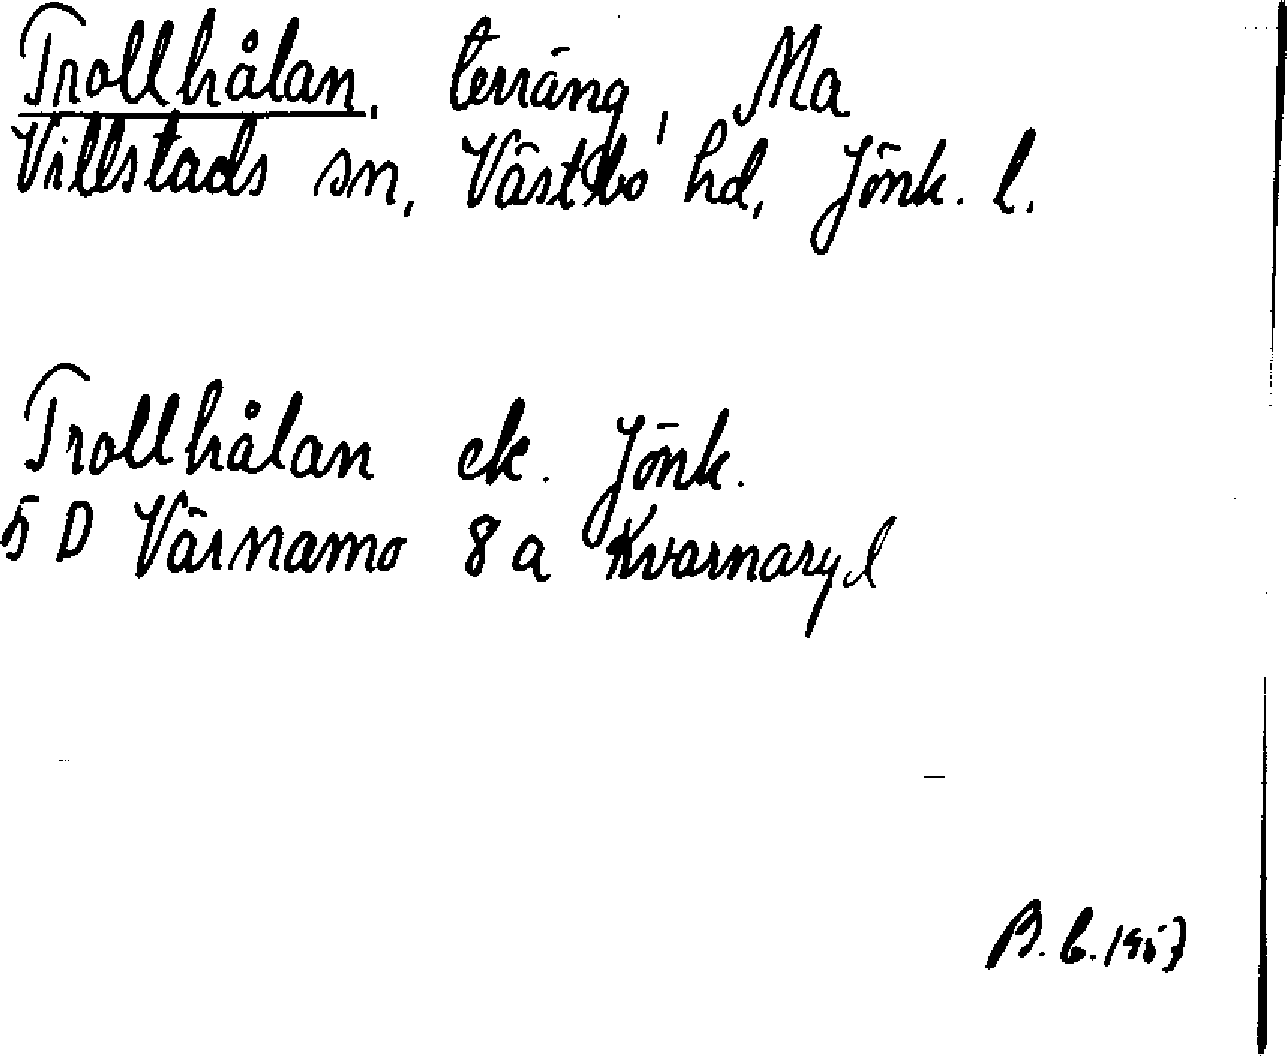 Trollhålan, terräng, Ma
Villstads sn, Västbo hd, Jönk. l.
Trollhålan ek. Jönk.
5 D Värnamo 8 a Kvarnaryd
B. E. 1957